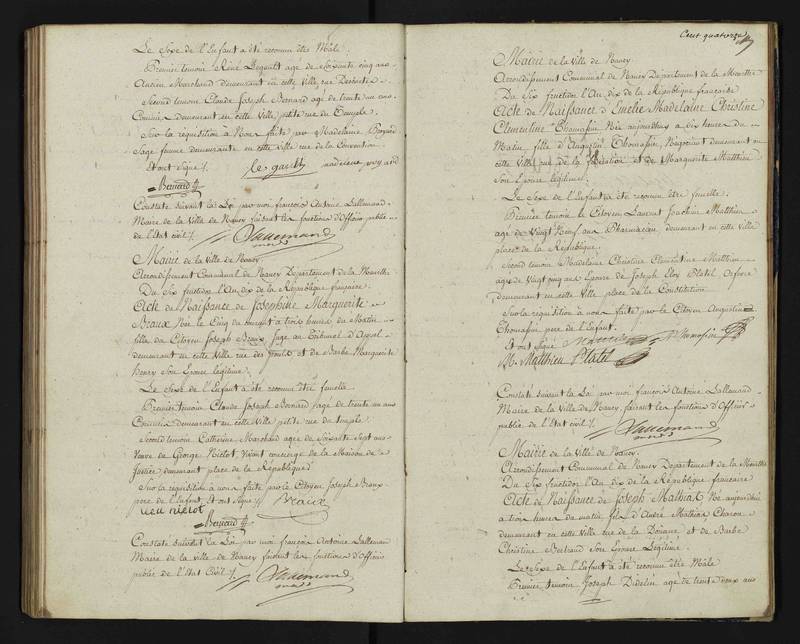 Le Sexe de l'Enfant a été reconnu être Mâle.
Premier temoin René Legault agé de Soixante cinq ans
Ancien Marchand demeurant en cette Ville rue
Second temoin Claude Joseph Bernard agé de trente un ans
Commis demeurant en cette Ville petite rue du Temple
Sur la réquisition à Nous faite par Madelaine
Sage femme demeurante en cette ville rue de la Convention
Et ont Signé /.
le gault
Bernard
Constaté suivant la Loi par moi françois Antoine Lallemand
Maire de la Ville de Nancy faisant les fonctions d'Officier public
de l'Etat civil /.
Lallemand
Mairie de la Ville de Nancy.
Arrondissement Communal de Nancy Departement de la Meurthe
Du Six fructidor l'An dix de la République française.
Acte de Naissance de Josephine Marguerite
Braux Née le Cinq du courant à trois heures du Matin
fille du Citoyen Joseph Braux Juge au Tribunal d'Appel
demeurant en cette Ville rue des et de Barbe Marguerite
Henry Son Epouse légitime.
Le Sexe de l'Enfant a été reconnu être femelle
Premier temoin Claude Joseph Bernard agé de trente un ans
Commis demeurant en cette Ville petite rue du temple
Second temoin Catherine Marchand agée de Soixante Sept ans
Veuve de George Niclot, Vivant concierge de la Maison de
Justice demeurant place de la République
Sur la réquisition à nous faite par le Citoyen Joseph Braux
pere de l'Enfant, Et ont Signé /.
Braux
Bernard
Constaté suivant la Loi par moi françois Antoine Lallemand
Maire de la ville de Nancy faisant les fonctions d'Officier
public de l'Etat Civil /.
Lallemand
Cent quatorze
Mairie de la Ville de Nancy
Arrondissement Communal de Nancy Departement de la Meurthe
Du Six fructidor l'An dix de la République française
Acte de Naissance d'Emelie Madelaine Christine
Clementine Thomassin Née aujourdhui à dix heures du
Matin, fille d'Augustin Thomassin, Négociant demeurant en
cette Ville rue de la et de Marguerite Matthieu
Son Epouse légitime.
Le Sexe de l'Enfant a été reconnu être femelle.
Premier temoin le Citoyen Laurent Joachim Matthieu
agé de Vingt Neuf ans Pharmacien demeurant en cette Ville
place de la République.
Second temoin Madelaine Christine Clementine Matthieu
agée de Vingt cinq ans Epouse de Joseph Eloy Platel, Orfevre
demeurant en cette Ville place de la Constitution
Sur la réquisition à nous faite par le Citoyen Augustin
Thomassin pere de l'Enfant.
Et ont Signé
Thomassin
M. Matthieu Platel
Constaté suivant la Loi par moi françois Antoine Lallemand
Maire de la Ville de Nancy, faisant les fonctions d'Officier
public de l'Etat civil /.
Lallemand
Mairie de la Ville de Nancy.
Arrondissement Communal de Nancy Departement de la Meurthe
Du Six fructidor l'An dix de la République française
Acte de Naissance de Joseph Mathias Né aujourdhui
à trois heures du matin, fils d'André Mathias, Charon
demeurant en cette Ville rue de la Douane et de Barbe
Christine Bertrand Son Epouse Légitime.
Le Sexe de l'Enfant a été reconnu être Mâle
Premier temoin Joseph Didelin agé de trente deux ans